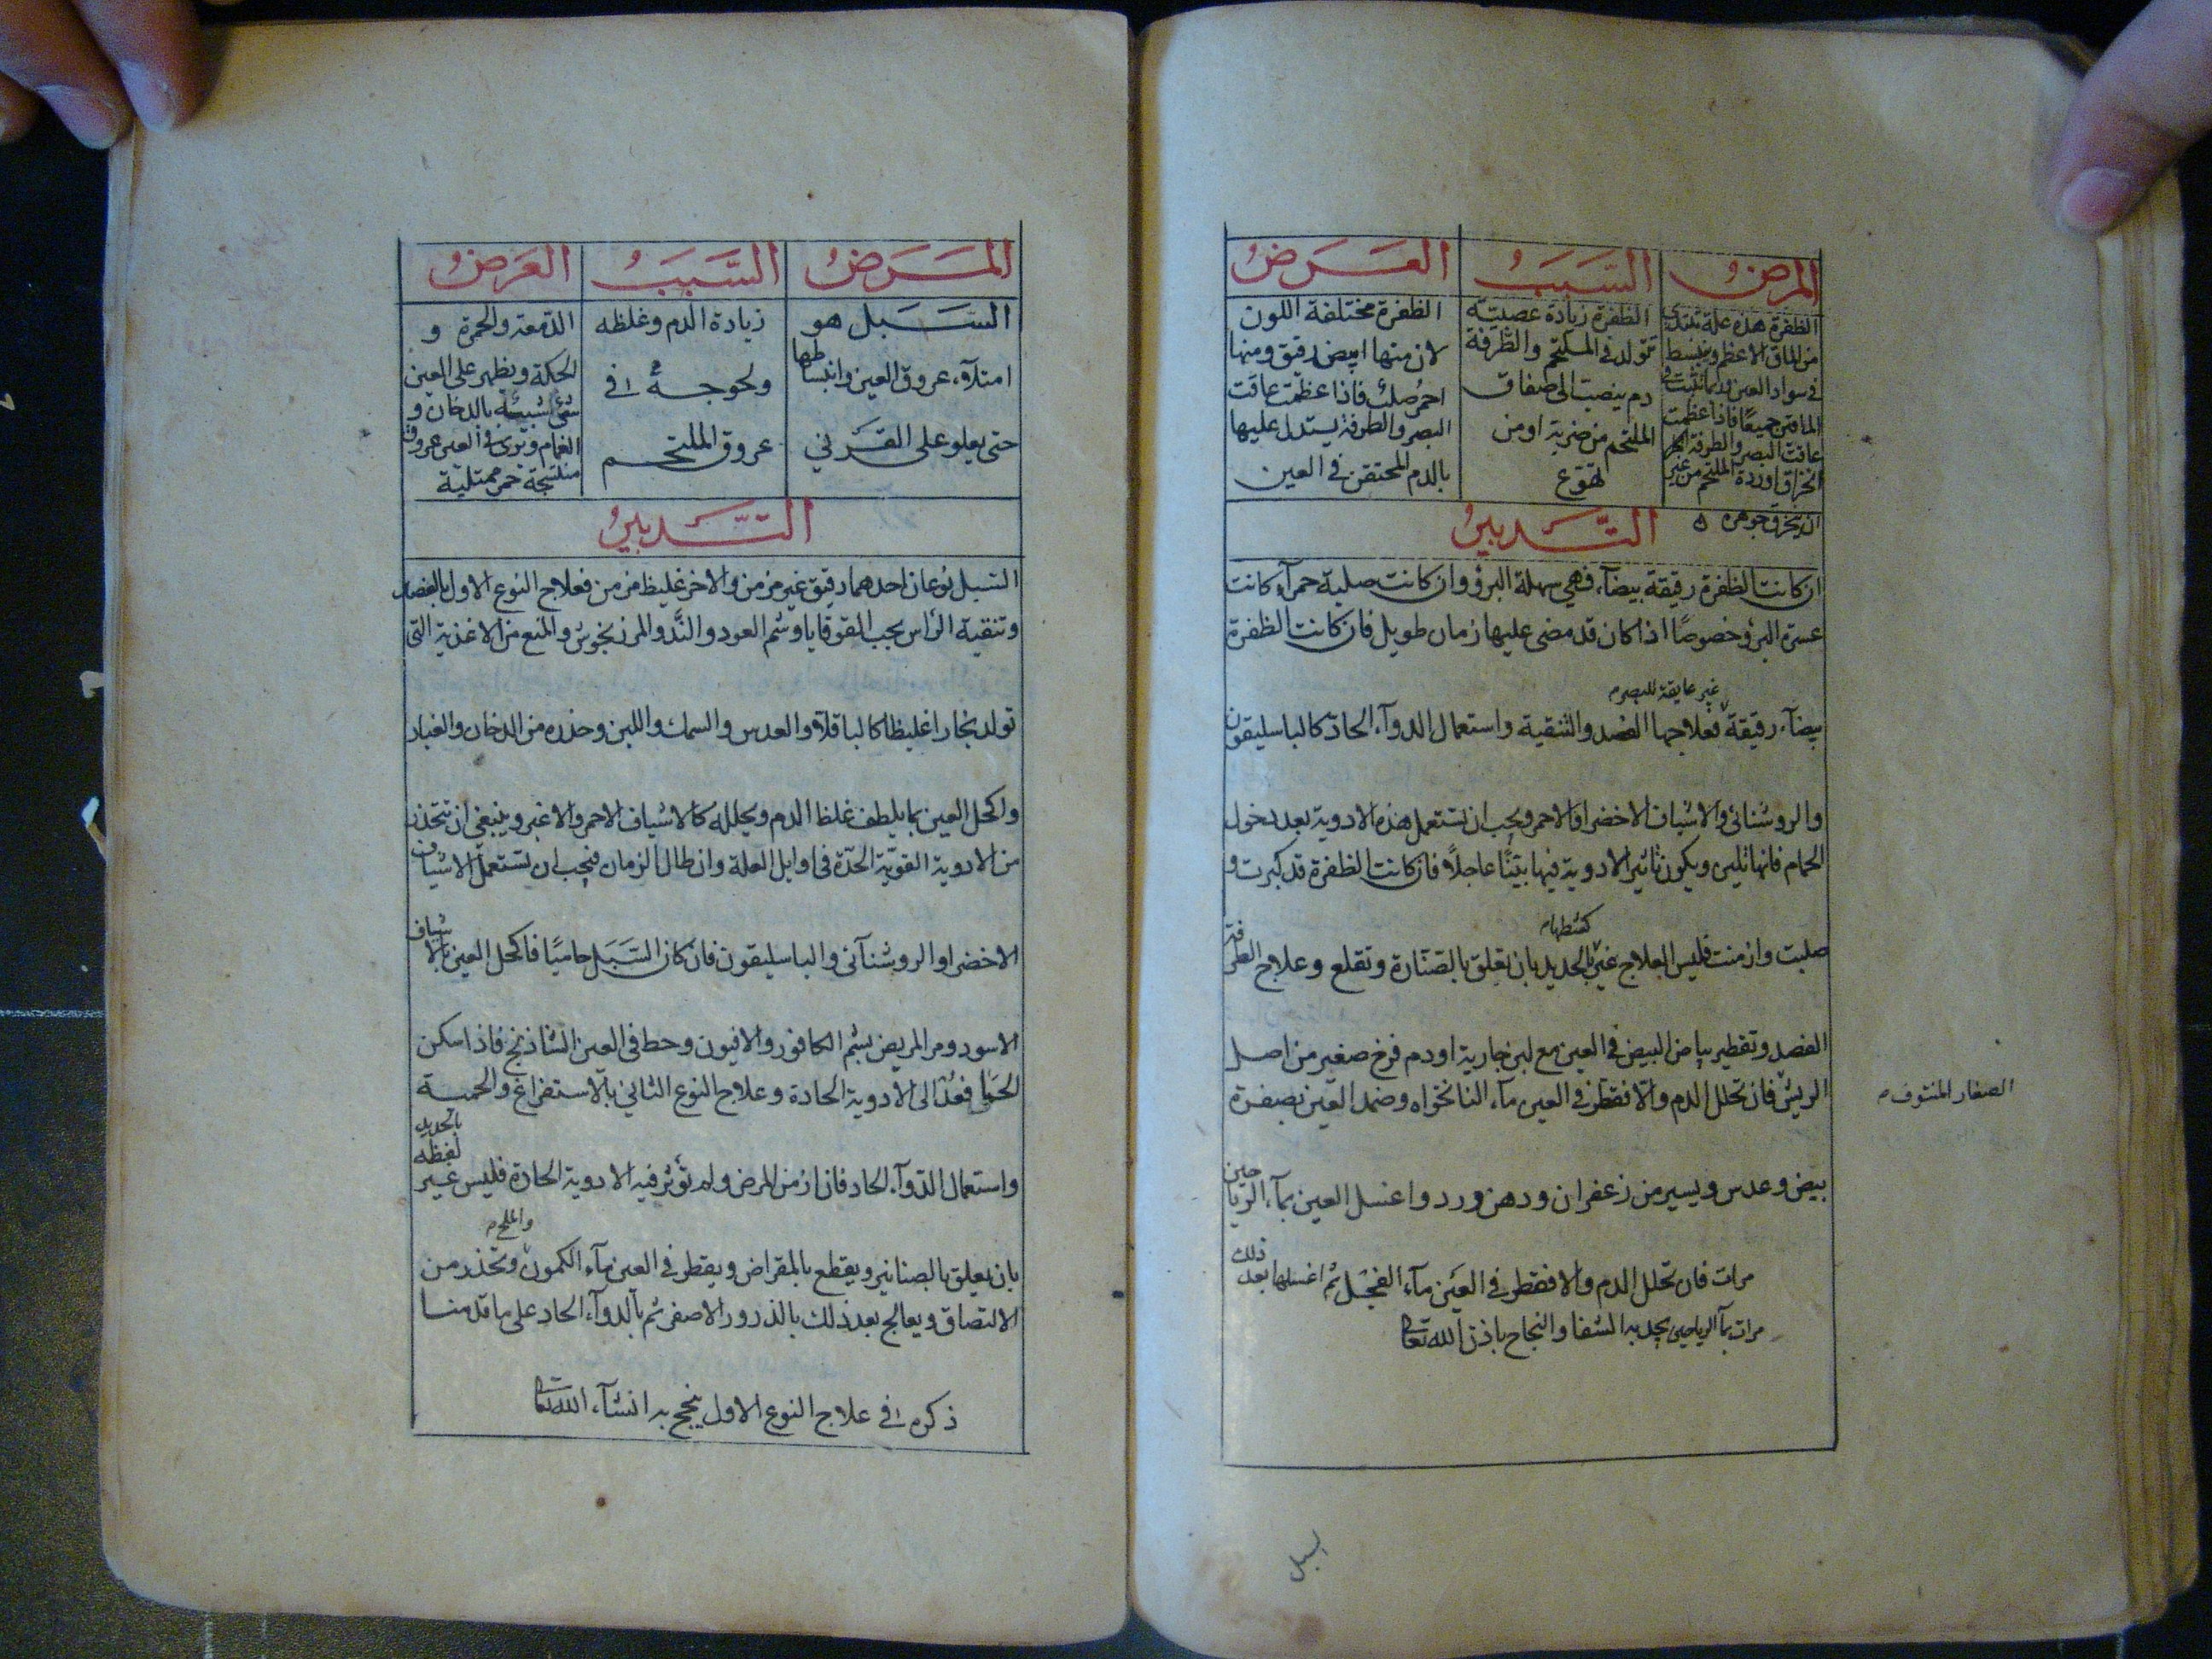 المرض السبب العرض
الظفرة هذه علة تبتدئ
من الماق الاعظم وينبسط
في سواد العين وربما نبتت في
الماقين جميعًا فاذا عظمت
عاقت البصر والطرفة
انخراق اوردة الملتحم من غير
ان يخرق جوهره ه
الظفرة زيادة عصبية
تتولد في الملتحم والطرفة
دم ينصب الى صفاق
الملتحم من ضربة او من
تهوع
الظفرة مختلفة اللون
لان منها ابيض رقيق ومنها
احمر صلب فاذا عظمت عاقت
البصر والطرفة يستدل عليها
بالدم المحتقن في العين
التدبير
ان كانت الظفرة رقيقة بيضآء فهي سهلة البرؤ وان كانت صلبة حمرآء كانت
عسرة البرؤ خصوصًا اذا كان قد مضى عليها زمان طويل فان كانت الظفرة
غير عايقة للبصر
بيضآء رقيقة فعلاجها الفصد والتنقية واستعمال الدوآء الحاد كالباسليقون
والروشنائي والاشياف الاخضر او الاحمر ويجب ان تستعمل هذه الادوية بعد دخول
الحمام فانها تلين ويكون تاثير الادوية فيها بيّنًا عاجلًا فان كانت الظفرة قد كبرت و
كشطها
صلبت وازمنت فليس العلاج غير بالحديد بان تعلق بالصنارة وتقلع وعلاج الطرفة
الفصد وتقطير بياض البيض في العين مع لبن جارية او دم فرخ صغير من اصل
الريش فان تحلل الدم والا فقطر في العين مآء النانخواه وضمد العين بصفرة
الصغار المنتوف
بيض وعدس ويسير من زعفران ودهن ورد واغسل العين بمآء الرياحين
مرات فان تحلل الدم والا فقطر في العين مآء الفجل ثم اغسلها بعد ذلك
مرات بمآ الرياحين يجد به الشفا والنجاح باذن الله تعالى
سبل
المرض السبب العرض
السبل هو
امتلآء عروق العين وانبساطها
حتى يعلو على القرني
زيادة الدم وغلظه
ولحوجه في
عروق الملتحم
الدمعة والحمرة و
الحكة ويظهر على العين
شئ شبيه بالدخان و
الغمام وترى في العين عروق
منتسجة حمر ممتلية
التدبير
السبل نوعان احدهما رقيق غير مزمن والاخر غليظ مزمن فعلاج النوع الاول بالفصد
وتنقية الرأس بحب القوقايا وشم العود والند والمرزنجوش والمنع من الاغذية التي
تولد بخارا غليظا كالباقلآء والعدس والسمك واللبن وحذره من الدخان والغبار
واكحل العين بما يلطف غلظ الدم ويحلله كالاشياف الاحمر والاغبر وينبغي ان تتحذر
من الادوية القوية الحدّة في اوايل العلة وان طال الزمان فيجب ان تستعمل الاشياف
الاخضر او الروشنآئي والباسليقون فان كان السبل حاميًا فاكحل العين بالاشياف
الاسود ومر المريض بشم الكافور والافيون وحط في العين الشاذنج فاذا سكن
الحمى فعُد الى الادوية الحادة وعلاج النوع الثاني بالاستفراغ والحمية
واستعمال الدوآء الحاد فان ازمن المرض ولم تؤثر فيه الادوية الحادة فليس غير لقطه بالحديد
والملح
بان يعلق بالصنانير ويقطع بالمقراض ويقطر في العين مآء الكمون وتحذر من
الالتصاق ويعالج بعد ذلك بالذرور الاصفر ثم بالدوآء الحاد على ما قدمنا
ذكره في علاج النوع الاول ينجح به انشآء الله تعالى